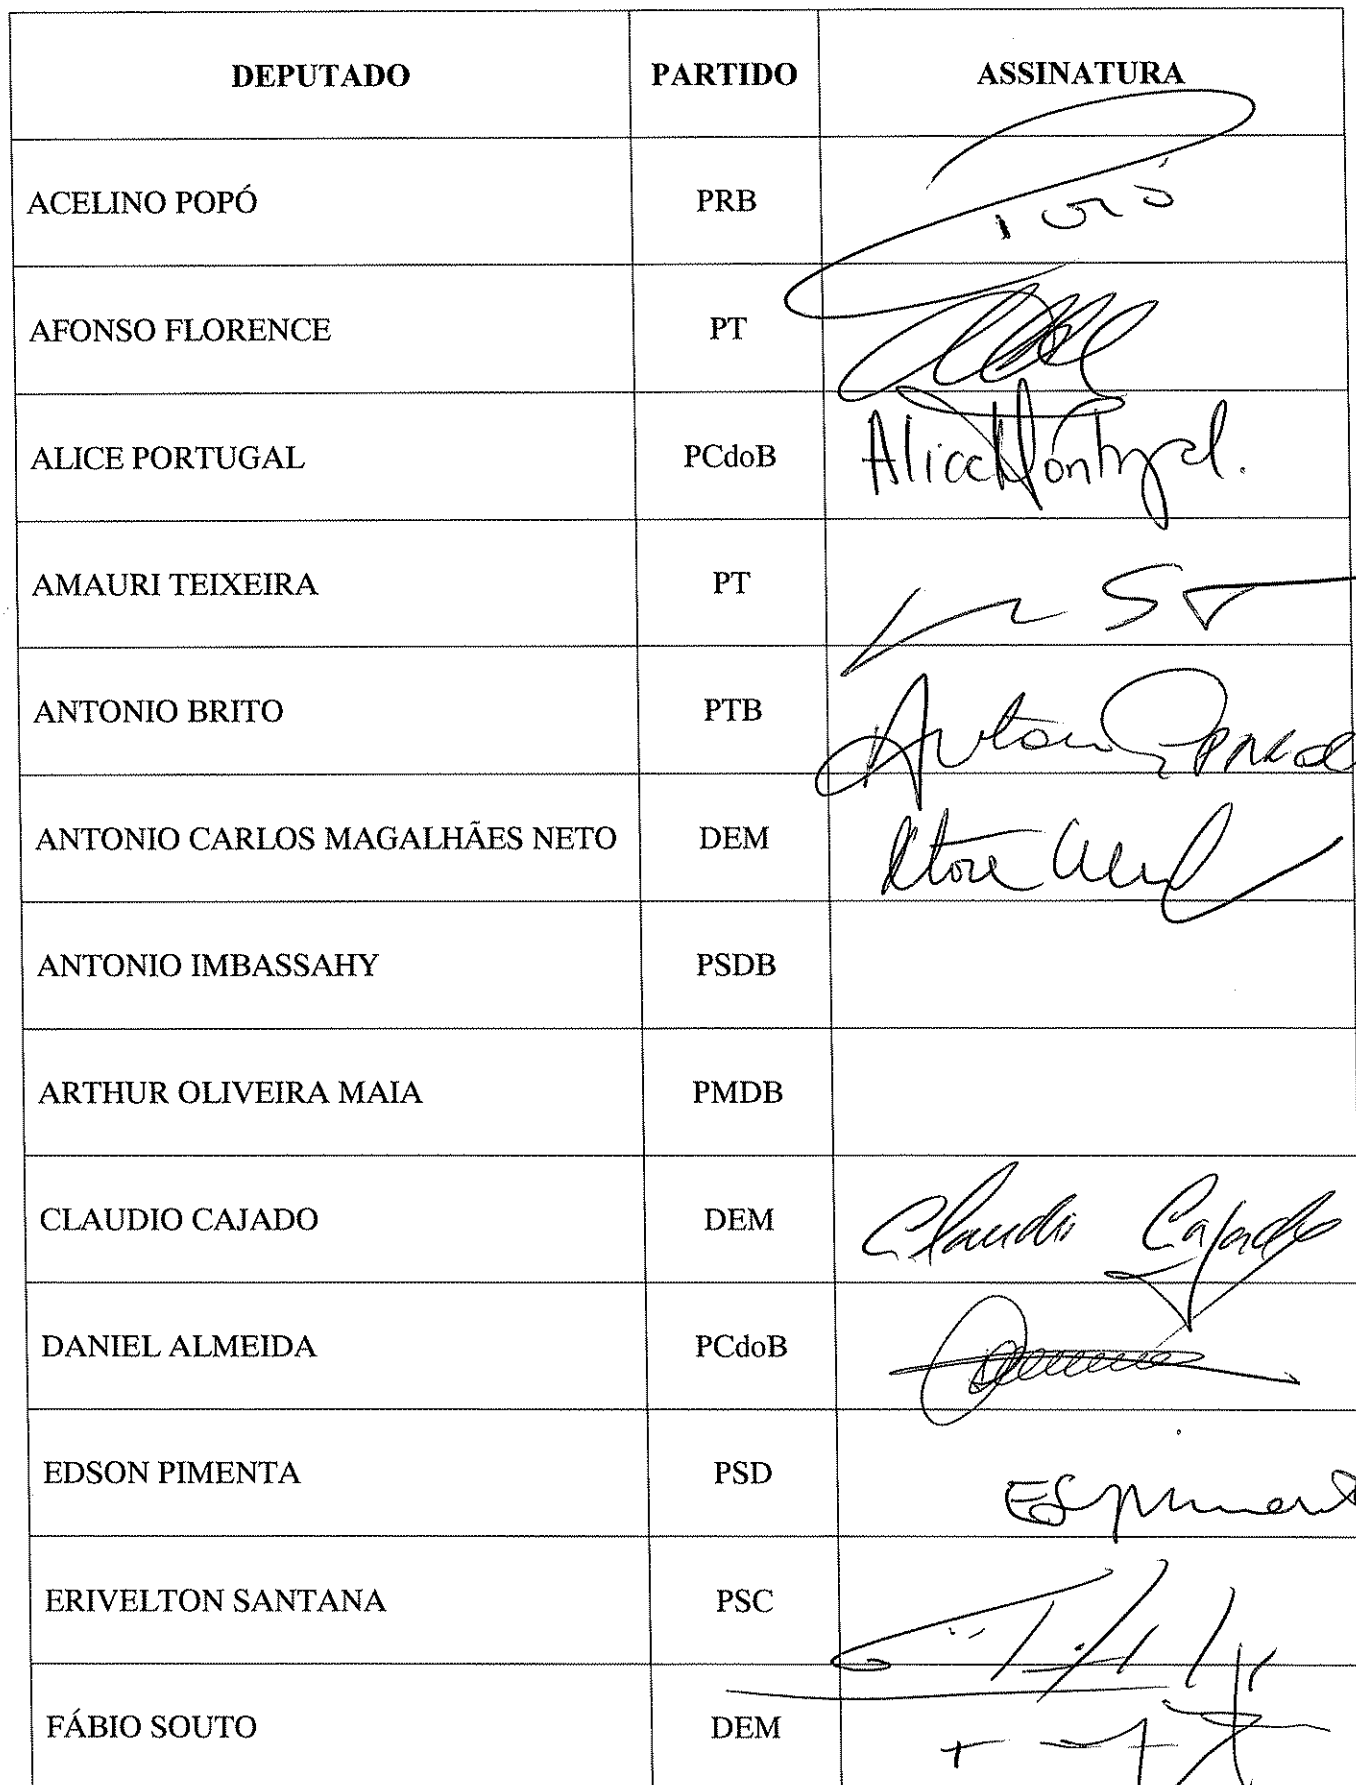 DEPUTADO PARTIDO ASSINATURA
ACELINO POPÓ PRB
AFONSO FLORENCE PT
ALICE PORTUGAL PCdoB Alice Portugal.
AMAURI TEIXEIRA PT
ANTONIO BRITO PTB
ANTONIO CARLOS MAGALHÃES NETO DEM
ANTONIO IMBASSAHY PSDB
ARTHUR OLIVEIRA MAIA PMDB
CLAUDIO CAJADO DEM Claudio Cajado
DANIEL ALMEIDA PCdoB
EDSON PIMENTA PSD
ERIVELTON SANTANA PSC
FÁBIO SOUTO DEM